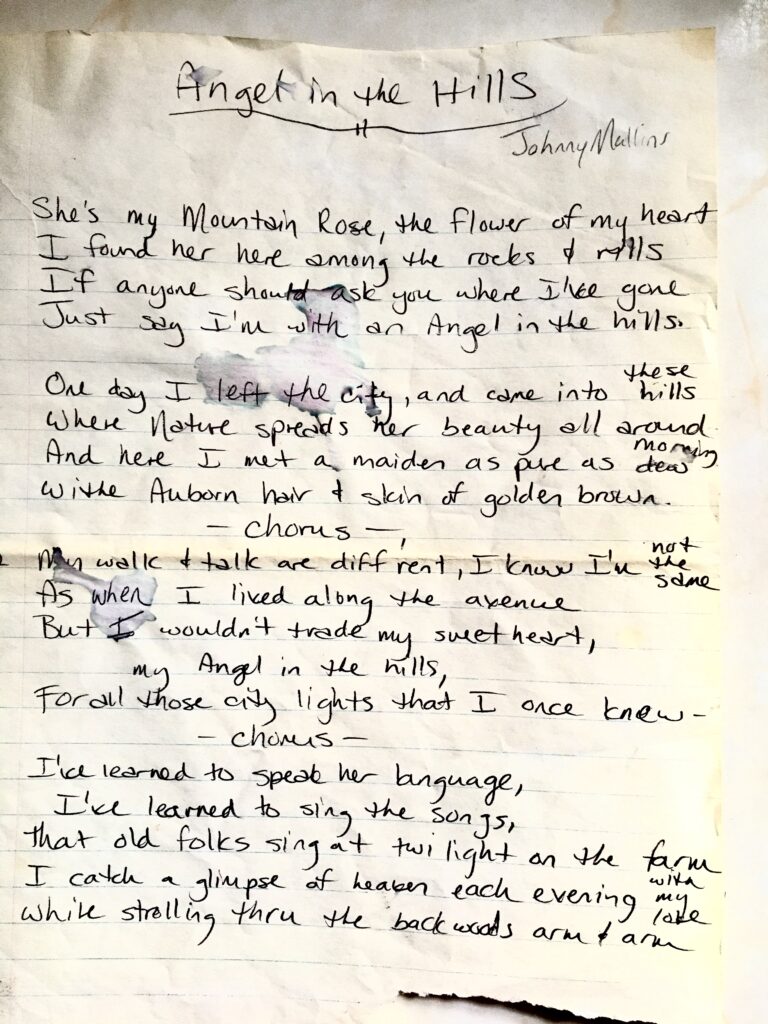 Angel in the Hills
Johnny Mullins
She's my Mountain Rose, the flower of my heart
I found her here among the rocks & rills
If anyone should ask you where I've gone
Just say I'm with an Angel in the hills.
One day I left the city, and came into these hills
Where Nature spreads her beauty all around
And here I met a maiden as pure as morning dew
Withe Auborn hair & skin of golden brown.
- chorus -
My walk & talk are diff'rent, I know I'm not the same
As when I lived along the avenue
But I wouldn't trade my sweetheart,
my Angel in the hills,
For all those city lights that I once knew -
- chorus -
I've learned to speak her language,
I've learned to sing the songs,
that old folks sing at twilight on the farm
I catch a glimpse of heaven each evening with my love
while strolling thru the backwoods arm & arm